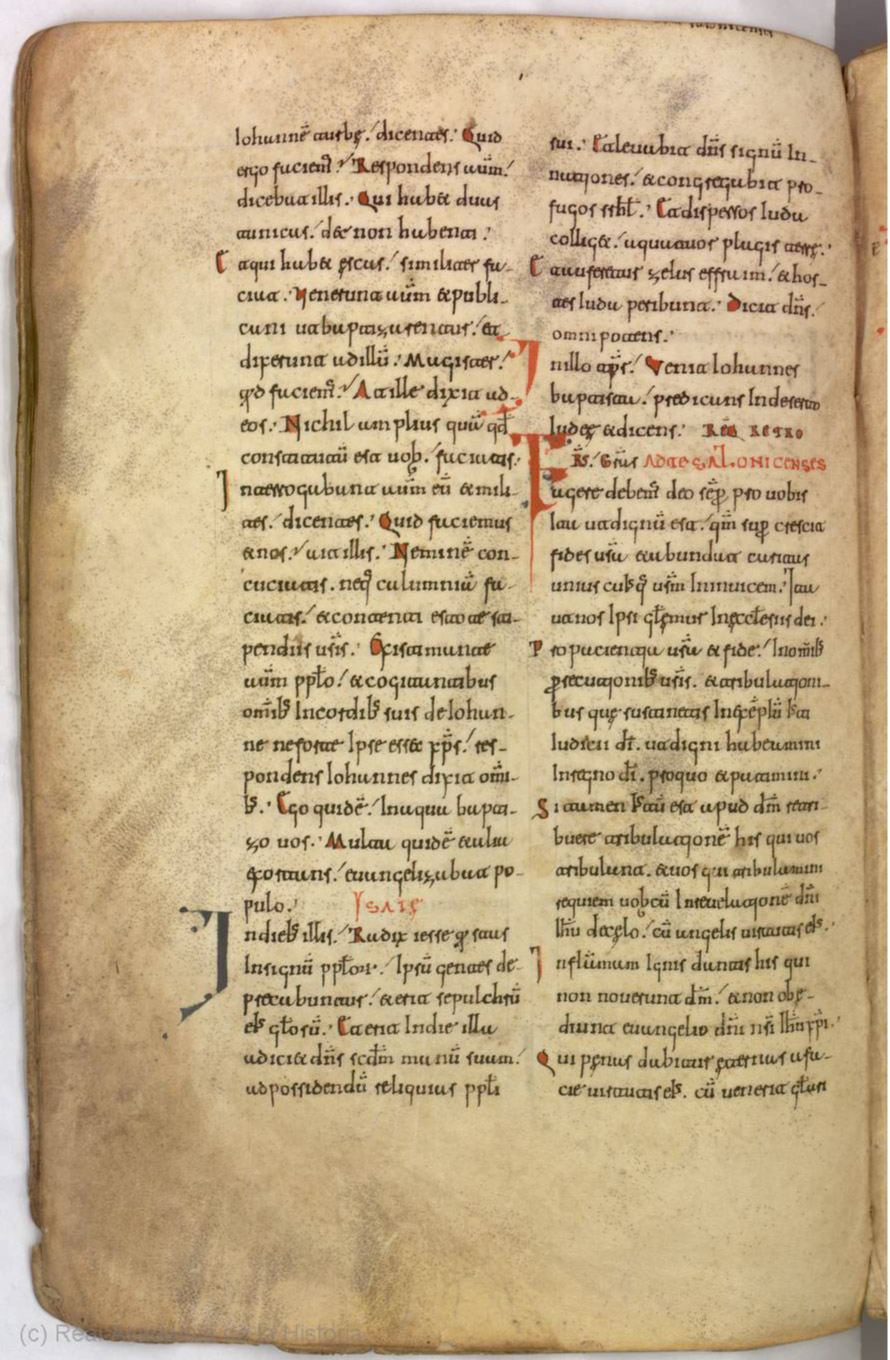 Iohannē turbę./ dicentes:· Quid
ergo faciem̄?/ Respondens aūm./
dicebat illis:· Qui habet duas
tunicas./ det non habenti:·
Et qui habet escas./ similiter fa-
ciat:· Venerunt aūm et publi-
cani ut baptizarentur./ et
dixerunt ad illū:· Magister./
qd̄ faciem̄?/ At ille dixit ad
eos:· Nichil amplius quā qd̄
constitutū est uob̄./ faciatis:·
Interrogabant aūm eū et mili-
tes./ dicentes:· Quid faciemus
et nos?/ ait illis:· Neminē con-
cutiatis. neq; calumniā fa-
ciatis./ et contenti estote sti-
pendiis ūsis:· Existimante
aūm pplo./ et cogitantibus
omīb; In cordib; suis de Iohan-
ne ne forte Ipse esset xp̄s./ res-
pondens Iohannes dixit omī-
b;:· Ego quidē./ In aqua bapti-
zo uos:· Multa quidē et alia
exortans./ euangelizabat po-
pulo:· Isaię
In dieb; illis./ Radix iesse q̄ stat
In signū pplor./ Ipsū gentes de-
precabuntur./ et erit sepulchrū
ei; gl̄osū:· Et erit In die illa
adiciet dn̄s scdm manū suam./
ad possidendū reliquias ppli
sui:· Et leuabit dn̄s signū In-
nationes./ et congregabit pro-
fugos srhl̄:· Et dispersos Iuda
colliget./ a quattuor plagis terrę:·
Et auferetur zelus effraim./ et hos-
tes Iuda peribunt:· Dicit dn̄s./
omnipotens:·
In illo tp̄r./ Venit Iohannes
baptista./ predicans In deserto
Iudeę et dicens:· REQ̄ RETRO
F̄RS./ Gr̄as AD TESALONICENSES
Agere debem̄ deo sēp̄ pro uobis
Ita ut dignū est./ qm̄ sup crescit
fides ūsa et abundat caritas
unius cuiusq; ūsm Inuicem./ Ita
ut nos Ipsi gl̄emur In eccl̄esiis dei:·
Pro patientia ūsa et fide./ In omīb;
p̄secutionib; ūsis. et tribulationi-
bus quę sustinetis In exēplū iusti
Iudicii dī. ut digni habeamini
In regno dī. pro quo et patimini:·
Si tamen iustū est apud dm̄ retri-
buere tribulationē his qui uos
tribulant. et uos qui tribulamini
requiem uobcū In reuelationē dn̄i
Ihū de cęlo./ cū angelis uirtutis ei;:·
In flāmam Ignis dantis his qui
non nouerunt dm̄./ et non obę-
diunt euangelio dn̄i nsī Ihū xp̄i:·
Qui pęnas dabunt ęternas a fa-
cie uirtutis ei;. cū uenerit gl̄ari
(c) Real Academia de la Historia